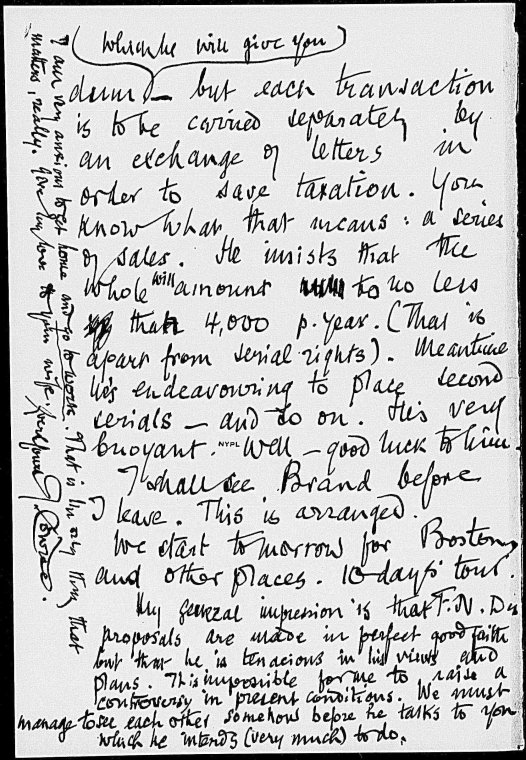 (which he will give you)
dum) – but each transaction
is to be carried separately by
an exchange of letters in
order to save taxation. You
know what that means: a series
of sales. He insists that the
whole will amount to no less
than 4,000 p. year. (That is
apart from serial rights). Meantime
he's endeavouring to place second
serials – and so on. He's very
buoyant. NYPL Well – good luck to him.
I shall see Brand before
I leave. This is arranged.
We start to morrow for Boston
and other places. 10 days' tour.
My general impression is that F.N.D's
proposals are made in perfect good faith
but that he is tenacious in his views and
plans. It is impossible for me to raise a
controversy in present conditions. We must
manage to see each other somehow before he talks to you
which he intends (very much) to do.
I am very anxious to get home and go to work. That is the only thing that
matters, really. Give my love to your wife. J. Conrad.